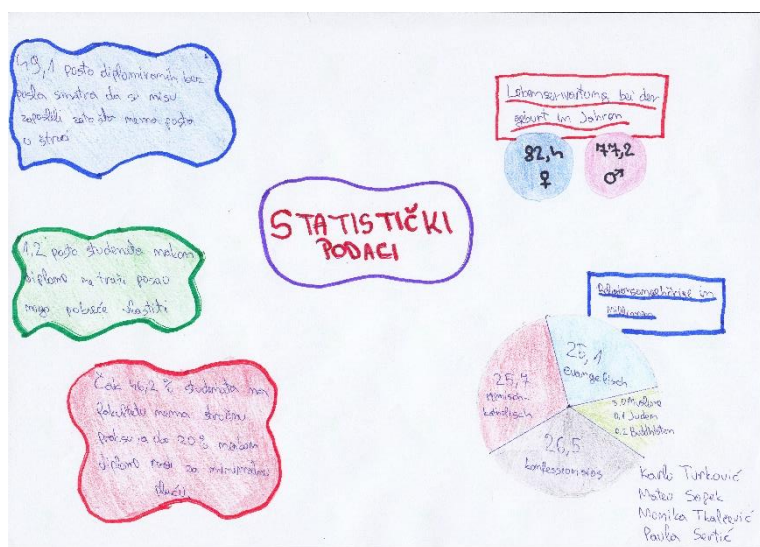 49,1 posto diplomiranih bez
posla smatra da se nisu
zaposlili zato što nema posla
u struci
1,2 posto studenata nakon
diplome ne traži posao
nego pokreće vlastiti
Čak 46,2 % studenata na
fakultetu nema stručnu
praksu a do 20% nakon
diplome radi za minimalnu
plaću
STATISTIČKI
PODACI
Lebenserwartung bei der
geburt in Jahren
82,4 77,2
♀ ♂
in
Millionen
25,1
evangelisch
25,7
römisch-
katholisch
26,5
konfessionslos
0,1 Juden
0,2 Buddhisten
Karlo Turković
Mateo Sopek
Monika Tkalčević
Paula Sertić